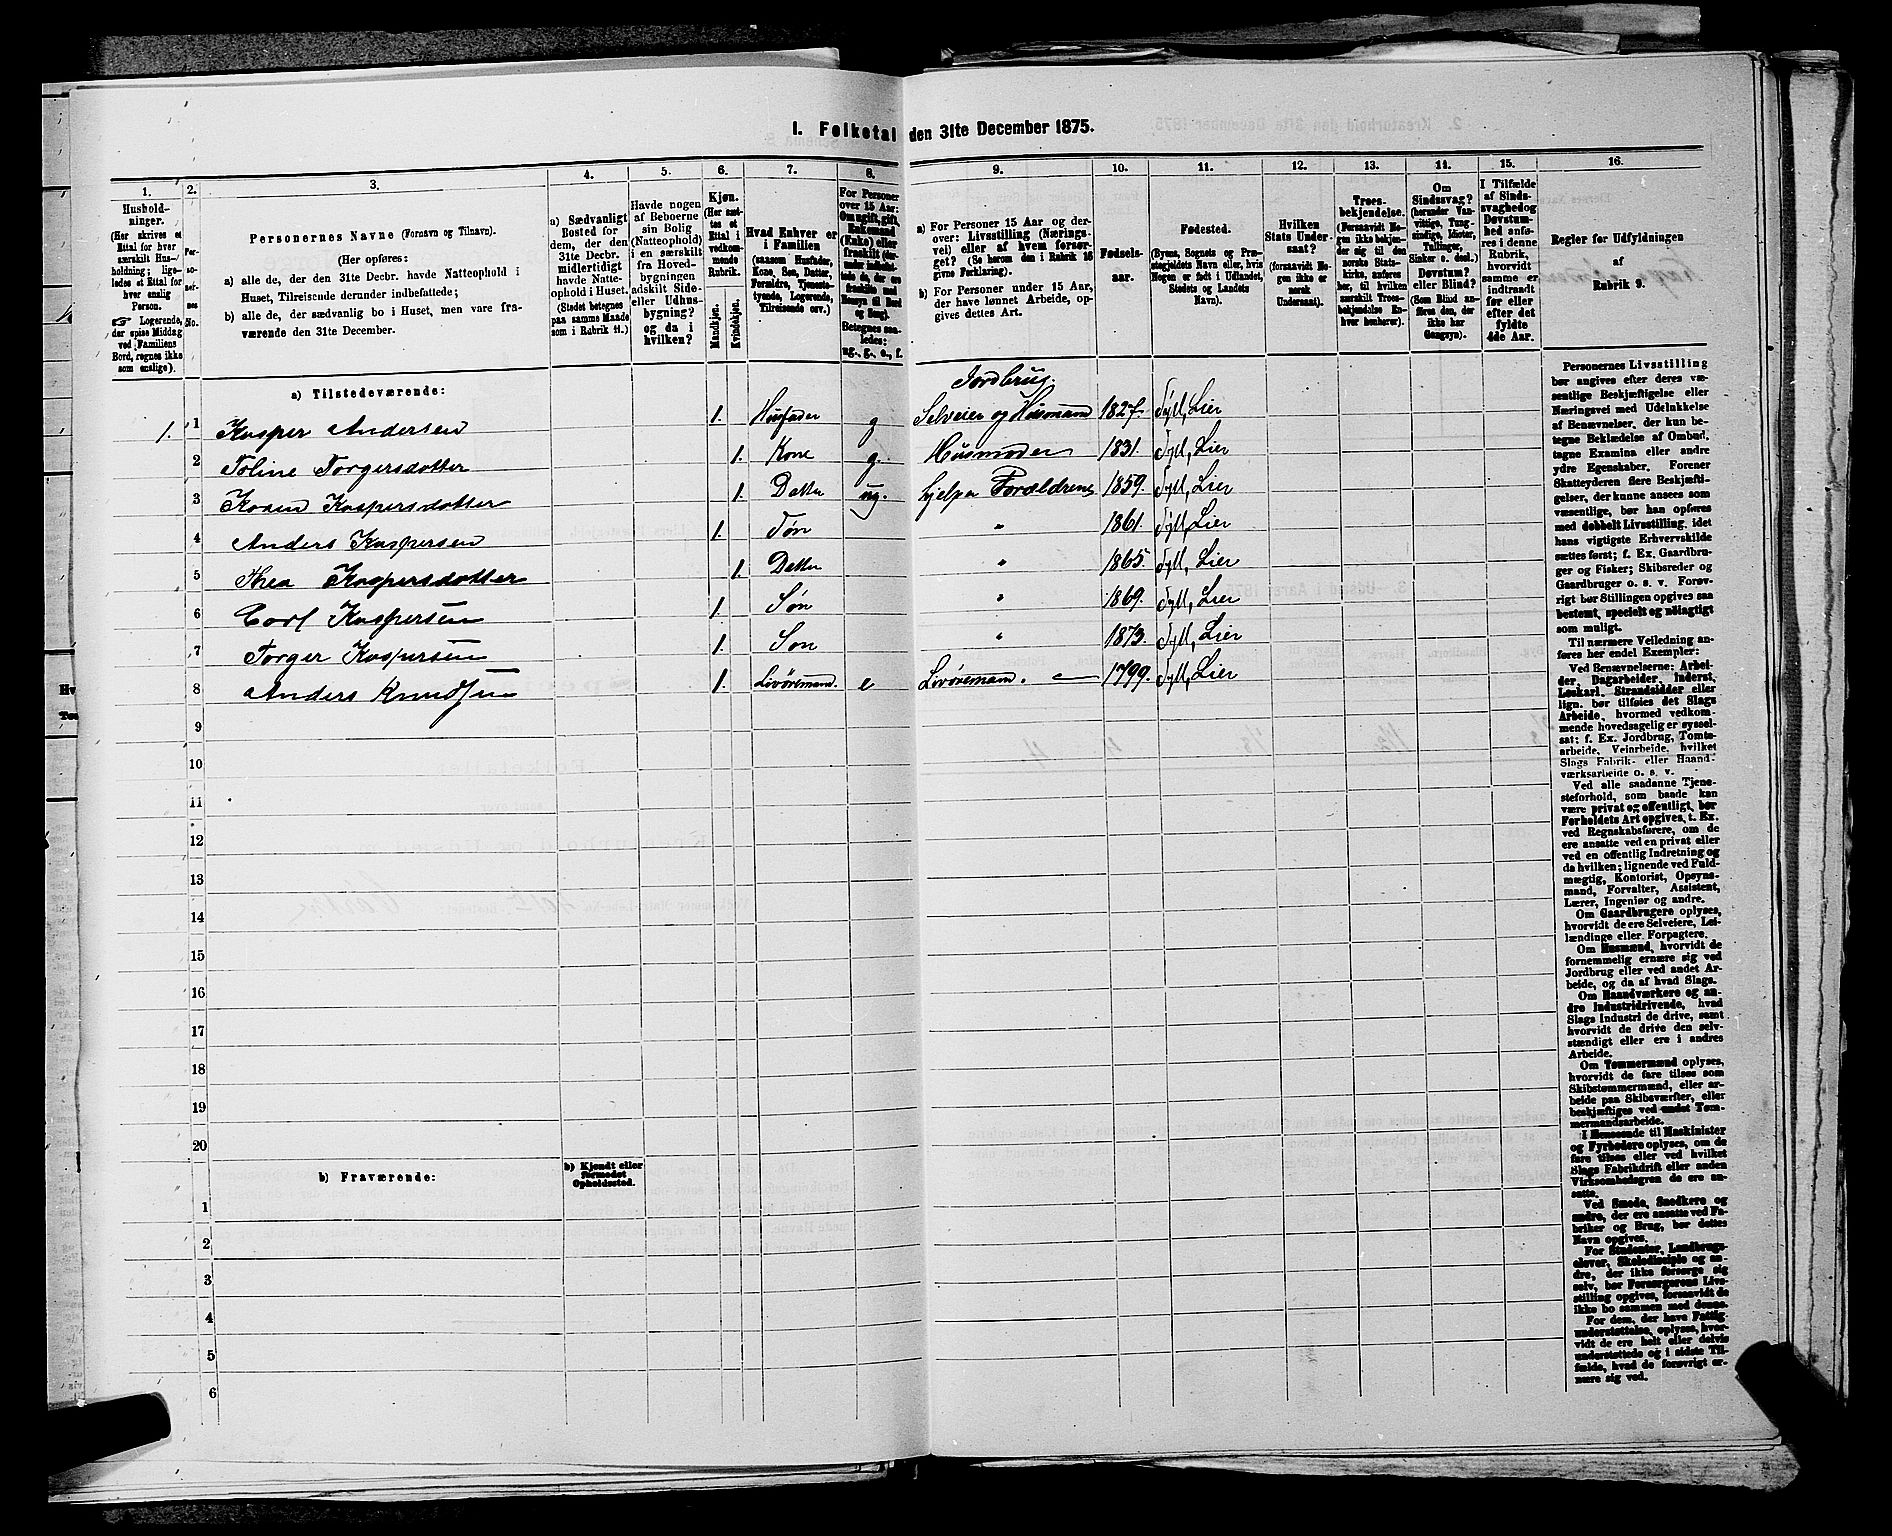 I. Folketal den 31te December 1875.
1. 2. 3. 4. 5. 6. 7. 8. 9. 10. 11. 12. 13. 14. 15. 16.
Hushold-
ninger.
(Her skrives et
Ettal for hver
særskilt Hus-
holdning; lige-
ledes et Ettal for
hver enslig
Person.
☞ Logerende,
der spise Middag
ved Familiens
Bord, regnes ikke
som enslige).
Per-
so-
ner-
nes
No.
Personernes Navne (Fornavn og Tilnavn).
(Her opføres:
a) alle de, der den 31te Decbr. havde Natteophold i
Huset, Tilreisende derunder indbefattede;
b) alle de, der sædvanlig bo i Huset, men vare fra-
værende den 31te December.
a) Sædvanligt
Bosted for
dem, der den
31te Decbr.
midlertidigt
havde Natte-
ophold i Huset.
(Stedet betegnes
paa samme Maade
som i Rubrik 11.)
Havde nogen
af Beboerne
sin Bolig
(Natteophold)
i en særskilt
fra Hoved-
bygningen
adskilt Side-
eller Udhus-
bygning?
og da i
hvilken?
Kjøn.
(Her sæt-
tes et
Ettal i
vedkom-
mende
Rubrik.
Mandkjøn.
Kvindekjøn.
Hvad Enhver er
i Familien
(saasom Husfader,
Kone, Søn, Datter,
Forældre, Tjeneste-
tyende, Logerende,
Tilreisende osv.)
For Personer
over 15 Aar:
Om ugift, gift,
Enkemand
(Enke) eller
fraskilt
Betegnes saa-
ledes:
ug., g., e., f.
a) For Personer 15 Aar og der-
over: Livsstilling (Nærings-
vei) eller af hvem forsør-
get? (Se herom den i Rubrik 16
givne Forklaring).
b) For Personer under 15 Aar,
der have lønnet Arbeide, op-
gives dettes Art.
Fødsels-
aar.
Fødested.
(Byens, Sognets og Præ-
stegjeldets Navn eller, hvis
Nogen er født i Udlandet,
Stedets og Landets
Navn).
Hvilken
Stats Under-
saat?
(forsaavidt No-
gen ikke er
norsk
Undersaat).
Troes-
bekjendelse.
(Forsaavidt No-
gen ikke bekjen-
der sig til den
norske Stats-
kirke, anføres
her, til hvilken
særskilt Troes-
bekjendelse En-
hver henhører).
Om
Sindssvag?
(herunder Van-
vittige, Tung-
sindige, Idioter,
Tullinger,
Sinker o. desl.)
Døvstum?
eller Blind?
(Som Blind an-
føres den, der
ikke har
Gangsyn).
I Tilfælde
af Sinds-
svaghed og
Døvstum-
hed anfø-
res i denne
Rubrik,
hvorvidt
samme er
indtraadt
før eller
efter det
fyldte
4de Aar.
Regler for Udfyldningen
af
Rubrik 9.
a) Tilstedeværende:
Jordbrug.
1. 1 Kasper Andersen 1. Husfader g Selveier og Husmand 1827. Syll, Lier
2 Toline Torgersdotter 1. Kone g. Husmoder 1831. Syll, Lier
3 Karen Kaspersdotter 1. Datter ug. hjelper Forældrene 1859. Syll, Lier
4 Anders Kaspersen 1. Søn " 1861. Syll, Lier
5 Thea Kaspersdotter 1. Datter " 1865. Syll, Lier
6 Carl Kaspersen 1. Søn " 1869. Syll, Lier
7 Torger Kaspersen 1. Søn " 1873. Syll, Lier
8 Anders Knudsen 1. Livøremand. e Livøremand. 1799. Syll, Lier
9
10
11
12
13
14
15
16
17
18
19
20
b) Fraværende:
b) Kjendt eller
formodet
Opholdssted.
1
2
3
4
5
6
Personernes Livsstilling
bør angives efter deres væ-
sentlige Beskjæftigelse eller
Næringsvei med Udelukkelse
af Benævnelser, der kun be-
tegne Beklædelse af Ombud,
tagne Examina eller andre
ydre Egenskaber. Forener
Skatteyderen flere Beskjæfti-
gelser, der kunne ansees som
væsentlige, bør han opføres
med dobbelt Livsstilling, idet
hans vigtigste Erhvervskilde
sættes først; f. Ex. Gaardbru-
ger og Fisker; Skibsreder og
Gaardbruger o. s. v. Forøv-
rigt bør Stillingen opgives saa
bestemt, specielt og nøiagtigt
som muligt.
Til nærmere Veiledning an-
føres her endel Exempler:
Ved Benævnelserne: Arbei-
der, Dagarbeider, Inderst,
Løskarl, Strandsidder eller
lign. bør tilføies det Slags
Arbeide, hvormed vedkom-
mende hovedsagelig er syssel-
sat; f. Ex. Jordbrug, Tomte-
arbeide, Veiarbeide, hvilket
Slags Fabrik- eller Haand-
værksarbeide o. s. v.
Ved alle saadanne Tjene-
steforhold, som baade kan
være privat og offentligt, bør
Forholdets Art opgives, t. Ex.
ved Regnskabsførere, om de
ere ansatte ved en privat eller
ved en offentlig Indretning og
da hvilken; lignende ved Fuld-
mægtig, Kontorist, Opsyns-
mand, Forvalter, Assistent,
Lærer, Ingeniør og andre.
Om Gaardbrugere oplyses,
hvorvidt de ere Selveiere, Lei-
lændinge eller Forpagtere.
Om Husmænd, hvorvidt de
fornemmelig ernære sig ved
Jordbrug eller ved andet Ar-
beide, og da af hvad Slags.
Om Haandværkere og an-
dre Industridrivende, hvad
Slags Industri de drive, samt
hvorvidt de drive den selv-
stændigt eller ere i andres
Arbeide.
Om Tømmermænd oplyses,
hvorvidt de fare tilsøs som
Skibstømmermænd, eller ar-
beide paa Skibsværfter, eller
beskjæftiges ved andet Tøm-
mermandsarbeide.
I Henseende til Maskinister
og Fyrbødere oplyses, om de
fare tilsøs eller ved hvilket
Slags Fabrikdrift eller anden
Virksomhedsgren de ere an-
satte.
Ved Smede, Snedkere og
andre, der ere ansatte ved Fa-
briker og Brug, bør dettes
Navn opgives.
For Studenter, Landbrugs-
elever, Skoledisciple og an-
dre, der ikke forsørge sig
selv, bør Forsørgerens Livs-
stilling opgives, forsaavidt de
ikke bo sammen med denne.
For dem, der have Fattig-
understøttelse, oplyses, hvor-
vidt de ere helt eller delvis
understøttede og i sidste Til-
fælde, hvad de forøvrigt er-
nære sig ved.